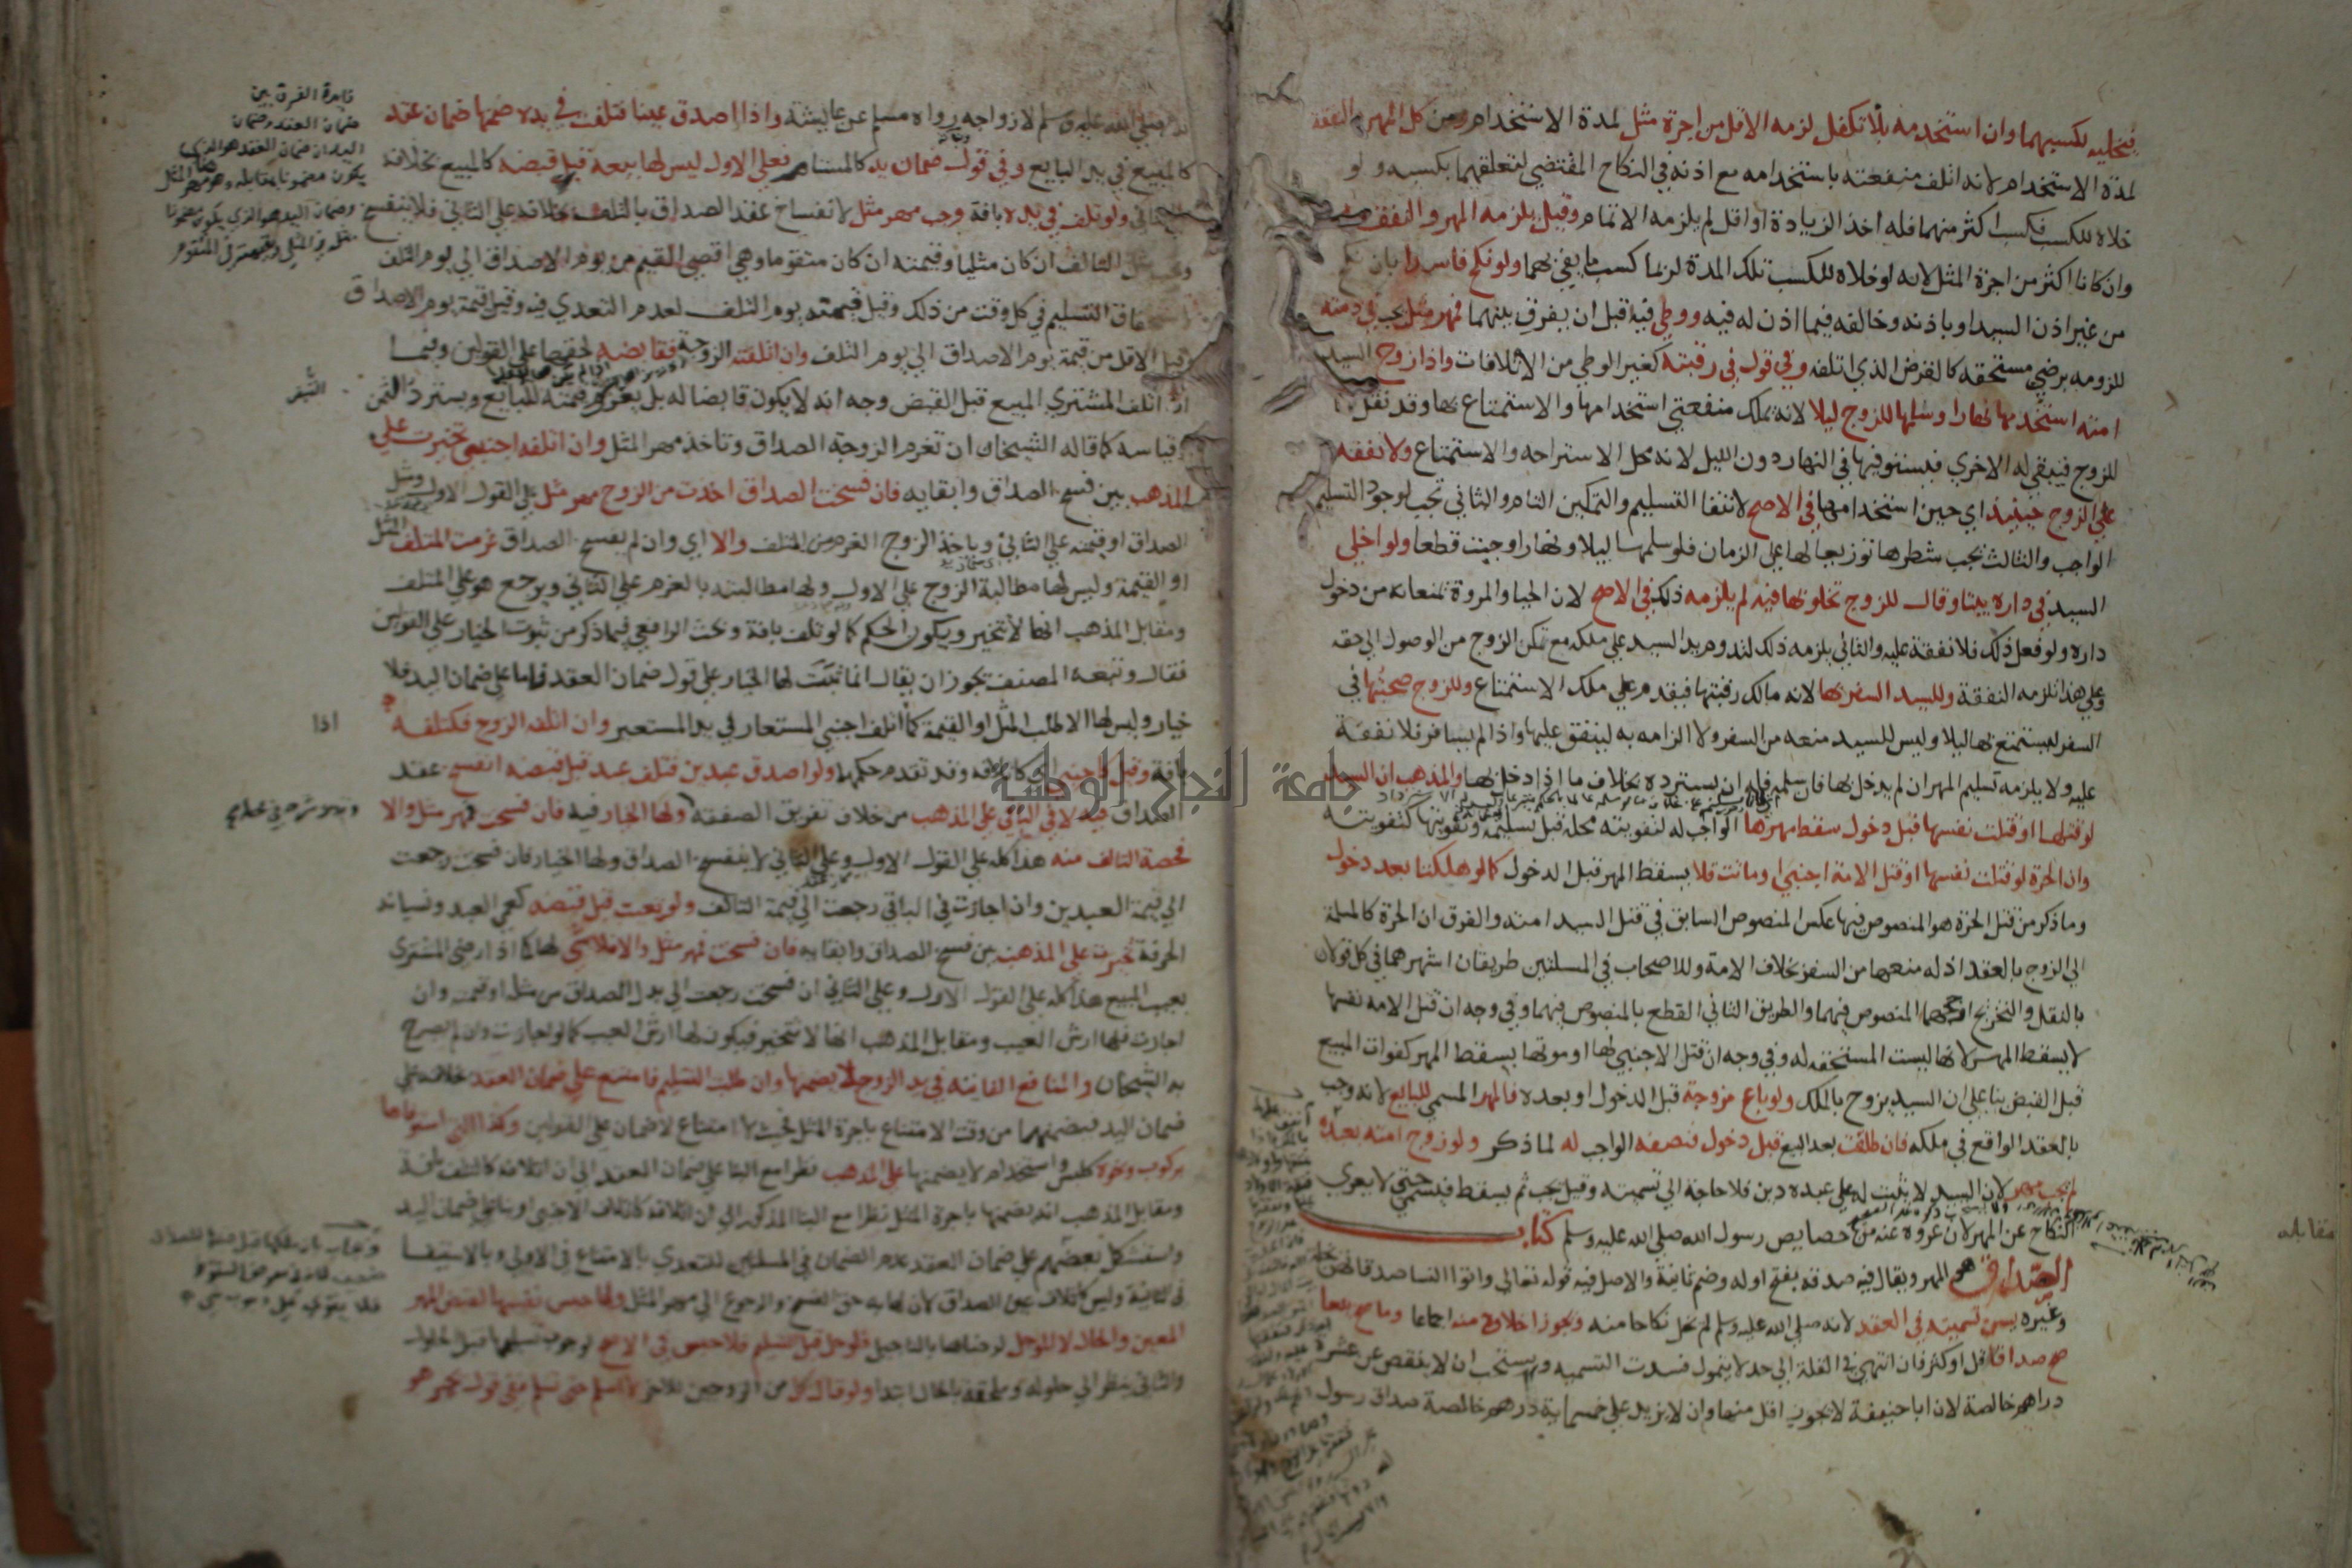 فيخليه لكسبهما وان استخدمه بلا تكفل لزمه الاقل من اجرة مثل لمدة الاستخدام ومن كل المهر والنفقة
لمدة الاستخدام لانه اتلف منفعته باستخدامه مع اذنه في النكاح المقتضي لتعلقهما بكسبه ولو
خلاه للكسب فكسب اكثر منهما فله اخذ الزيادة او اقل لم يلزمه الاتمام وقيل يلزمه المهر والنفقة
وان كانا اكثر من اجرة المثل لانه لو خلاه للكسب تلك المدة لربما كسب ما يفي بهما ولو نكح فاسدا بان نكح
من غير اذن السيد او باذنه وخالفه فيما اذن له فيه ووطي فيه قبل ان يفرق بينهما فمهر مثل يجب في ذمته
للزومه برضي مستحقه كالقرض الذي اتلفه وفي قول في رقبته كغير الوطي من الاتلافات واذا زوج السيد
امته استخدمها نهارا وسلمها للزوج ليلا لانه يملك منفعتي استخدامها والاستمتاع بها وقد نقل
للزوج فيبقي له الاخري فيستوفيها في النهار دون الليل لانه محل الاستراحه والاستمتاع ولا نفقة
علي الزوج حينيذ اي حين استخدامها في الاصح لانتفا التسليم والتمكين التام والثاني تجب لوجود التسليم
الواجب والثالث يجب شطرها توزيعا لها علي الزمان فلو سلمها ليلا ونهارا وجبت قطعا ولو اخلي
السيد في داره بيتا وقال للزوج تخلو بها فيه لم يلزمه ذلك في الاصح لان الحيا والمروة تمنعانه من دخول
داره ولو فعل ذلك فلا نفقة عليه والثاني يلزمه ذلك لتدوم يد السيد علي ملكه مع تمكن الزوج من الوصول الي حقه
وعلي هذا تلزمه النفقة وللسيد السفر بها لانه مالك رقبتها فيقدم علي ملك الاستمتاع وللزوج صحبتها في
السفر ليستمتع بها ليلا وليس للسيد منعه من السفر ولا الزامه به لينفق عليها واذا لم يسافر فلا نفقة
عليه ولا يلزمه تسليم المهر ان لم يدخل بها فان سلمه فله ان يسترده بخلاف ما اذا دخل بها والمذهب ان السيد
لو قتلها او قتلت نفسها قبل دخول سقط مهرها الواجب له لتفويته محله قبل تسليمه وتفويتها كتفويته
وان الحرة لو قتلت نفسها او قتل الامة اجنبي او ماتت فلا يسقط المهر قبل الدخول كما لو هلكتا بعد دخول
وما ذكر من قتل الحرة هو المنصوص فيها عكس المنصوص السابق في قتل السيد امته والفرق ان الحرة كالمسلمة
الي الزوج بالعقد اذ له منعها من السفر بخلاف الامة وللاصحاب في المسلتين طريقان اشهرهما في كل قولان
بالنقل والتخريج ارجحهما المنصوص فيهما والطريق الثاني القطع بالمنصوص فيهما وفي وجه ان قتل الامه نفسها
لا يسقط المهر لانها ليست المستحقه له وفي وجه ان قتل الاجنبي لها او موتها يسقط المهر كفوات المبيع
قبل القبض بنا علي ان السيد يزوج بالملك ولو باع مزوجة قبل الدخول او بعده فالمهر المسمي للبايع لانه وجب
بالعقد الواقع في ملكه فان طلقت بعد البيع قبل دخول فنصفه الواجب له لما ذكر ولو زوج امته بعبده
لم يجب مهر لان السيد لا يثبت له علي عبده دين فلا حاجة الي تسميته وقيل يجب ثم يسقط فيسمي حتي لا يعري
النكاح عن المهر لان عروه عنه من خصايص رسول الله صلي الله عليه وسلم كتاب
الصداق هو المهر ويقال فيه صدقه بفتح اوله وضم ثانيه والاصل فيه قوله تعالي واتوا النسا صدقاتهن نحلة
وغيره يسن تسميته في العقد لانه صلي الله عليه وسلم لم يخل نكاحا منه ويجوز اخلاوه منه اجماعا وما صح بيعا
صح صداقا قل او كثر فان انتهي في القلة الي حد لا يتمول فسدت التسميه ويستحب ان لا ينقص عن عشرة
دراهم خالصة لان ابا حنيفة لا يجوز اقل منها وان لا يزيد علي خمسماية درهم خالصة صداق رسول
مقابله
جامعة النجاح الوطنية
صلي الله عليه وسلم لازواجه رواه مسلم عن عايشة واذا اصدق عينا فتلفت في يده ضمنها ضمان عقد
كالمبيع في يد البايع وفي قول ضمان يد كالمستام فعلي الاول ليس لها بيعه قبل قبضه كالمبيع بخلافه
الثاني ولو تلف في يده بافة وجب مهر مثل لانفساخ عقد الصداق بالتلف بخلافه علي الثاني فلا ينفسخ
مثل التالف ان كان مثليا وقيمته ان كان متقوما وهي اقصي القيم من يوم الاصداق الي يوم التلف
التسليم في كل وقت من ذلك وقيل قيمته يوم التلف لعدم التعدي فيه وقيل قيمة يوم الاصداق
وقيل الاقل من قيمة يوم الاصداق الي يوم التلف وان اتلفته الزوجة فقابضة لحقها علي القولين وفيما
اذا اتلف المشتري المبيع قبل القبض وجه انه لا يكون قابضا له بل يغرم قيمته للبايع ويسترد الثمن
قياسه كما قاله الشيخان ان تغرم الزوجة الصداق وتاخذ مهر المثل وان اتلفه اجنبي تخيرت علي
المذهب بين فسخ الصداق وابقايه فان فسخت الصداق اخذت من الزوج مهر مثل علي القول الاول ومثل
الصداق او قيمته علي الثاني وياخذ الزوج الغرم من المتلف والا اي وان لم تفسخ الصداق غرمت المتلف المثل
او القيمة وليس لها مطالبة الزوج علي الاول ولها مطالبته بالغرم علي الثاني ويرجع هو علي المتلف
ومقابل المذهب انها لا تتخير ويكون الحكم كما لو تلف بافة وبحث الرافعي فيما ذكر من ثبوت الخيار علي القولين
فقال وتبعه المصنف يجوز ان يقال انما تثبت لها الخيار علي قول ضمان العقد فاما علي ضمان اليد فلا
خيار وليس لها الا طلب المثل او القيمة كما اذا اتلف اجنبي المستعار في يد المستعير وان اتلفه الزوج فكتلفه
بافة وقيل كاجنبي اي كاتلافه وقد تقدم حكمهما ولو اصدق عبدين فتلف عبد قبل قبضه انفسخ عقد
الصداق فيه لا في الباقي علي المذهب من خلاف تفريق الصفقة ولها الخيار فيه فان فسخت فمهر مثل والا
فحصة التالف منه هذا كله علي القول الاول وعلي الثاني لا ينفسخ الصداق ولها الخيار فان فسخت رجعت
الي قيمة العبدين وان اجازت في الباقي رجعت الي قيمة التالف ولو تعيب قبل قبضه كعمي العبد ونسيانه
الحرفة تخيرت علي المذهب بين فسخ الصداق وابقايه فان فسخت فمهر مثل والا فلا شي لها كما اذا رضي المشتري
بعيب المبيع هذا كله علي القول الاول وعلي الثاني ان فسخت رجعت الي بدل الصداق من مثله او قيمته وان
اجازت فلها ارش العيب ومقابل المذهب انها لا تتخير فيكون لها ارش العيب كما لو اجازت وان لم يصرح
به الشيخان والمنافع الفايتة في يد الزوج لا يضمنها وان طلبت التسليم فامتنع علي ضمان العقد خلافه علي
ضمان اليد فيضمنها من وقت الامتناع باجرة المثل فحيث لا امتناع لا ضمان علي القولين وكذا التي استوفاها
بركوب ونحوه كلبس واستخدام لا يضمنها علي المذهب نظرا مع البنا علي ضمان العقد الي ان اتلافه كالتلف بافة
ومقابل المذهب انه يضمنها باجرة المثل نظرا مع البنا المذكور الي ان اتلافه كاتلاف الاجنبي او بنا علي ضمان اليد
واستشكل بعضهم علي ضمان العقد عدم الضمان في المسلتين للتعدي بالامتناع في الاولي وبالاستيفا
في الثانية وليس كاتلاف عين الصداق لان لها به حق الفسخ والرجوع الي مهر المثل ولها حبس نفسها لتقبض المهر
المعين والحال لا المؤجل لرضاها بالتاجيل فلو حل قبل التسليم فلا حبس في الاصح لوجوب تسليمها قبل الحلول
والثاني ينظر الي حلوله ويلحقه بالحال ابتدا ولو قال كل من الزوجين للاخر لا اسلم حتي تسلم ففي قول يجبر هو
فايدة الفرق بين
ضمان العقد وضمان
اليد ان ضمان العقد هو الذي
يكون مضمونا بمقابله وهو مهر المثل
وضمان اليد هو الذي يكون مضمونا
بمثله في المثلي وقيمته في المتقوم
اذا